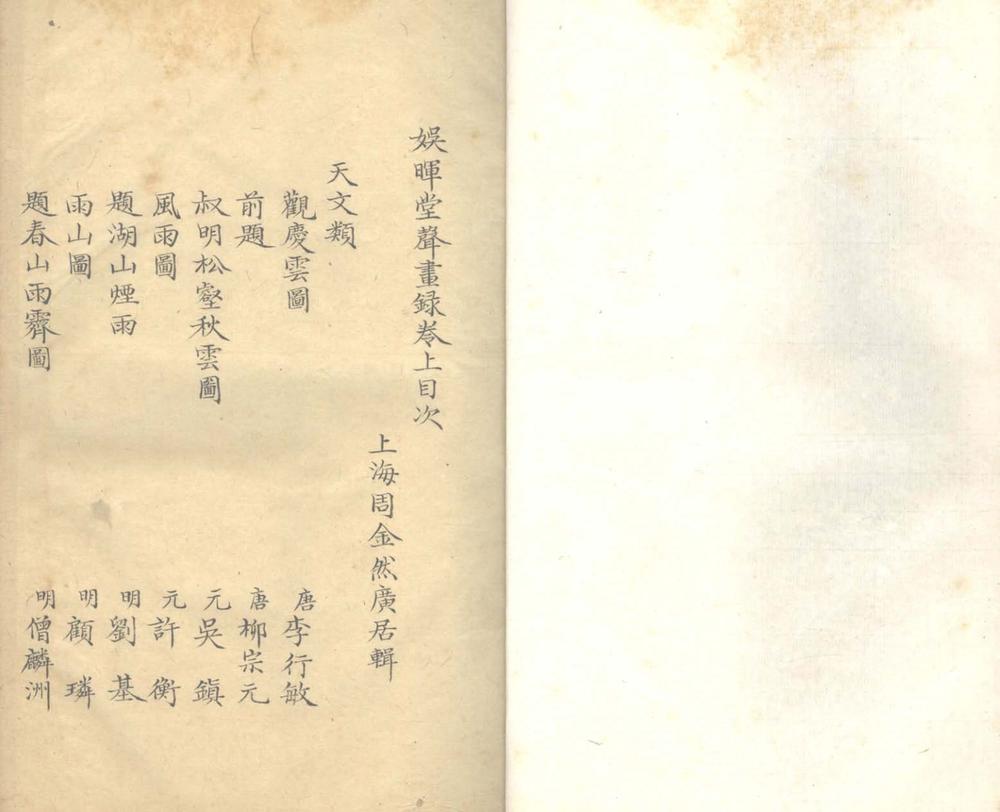 娯暉堂聲畫録卷上目次
上海周金然廣居輯
天文類
觀慶雲圖 唐李行敏
前題 唐柳宗元
叔明松壑秋雲圖 元吳鎮
風雨圖 元許衡
題湖山煙雨 明劉基
雨山圖 明顧璘
題春山雨霽圖 明僧麟洲